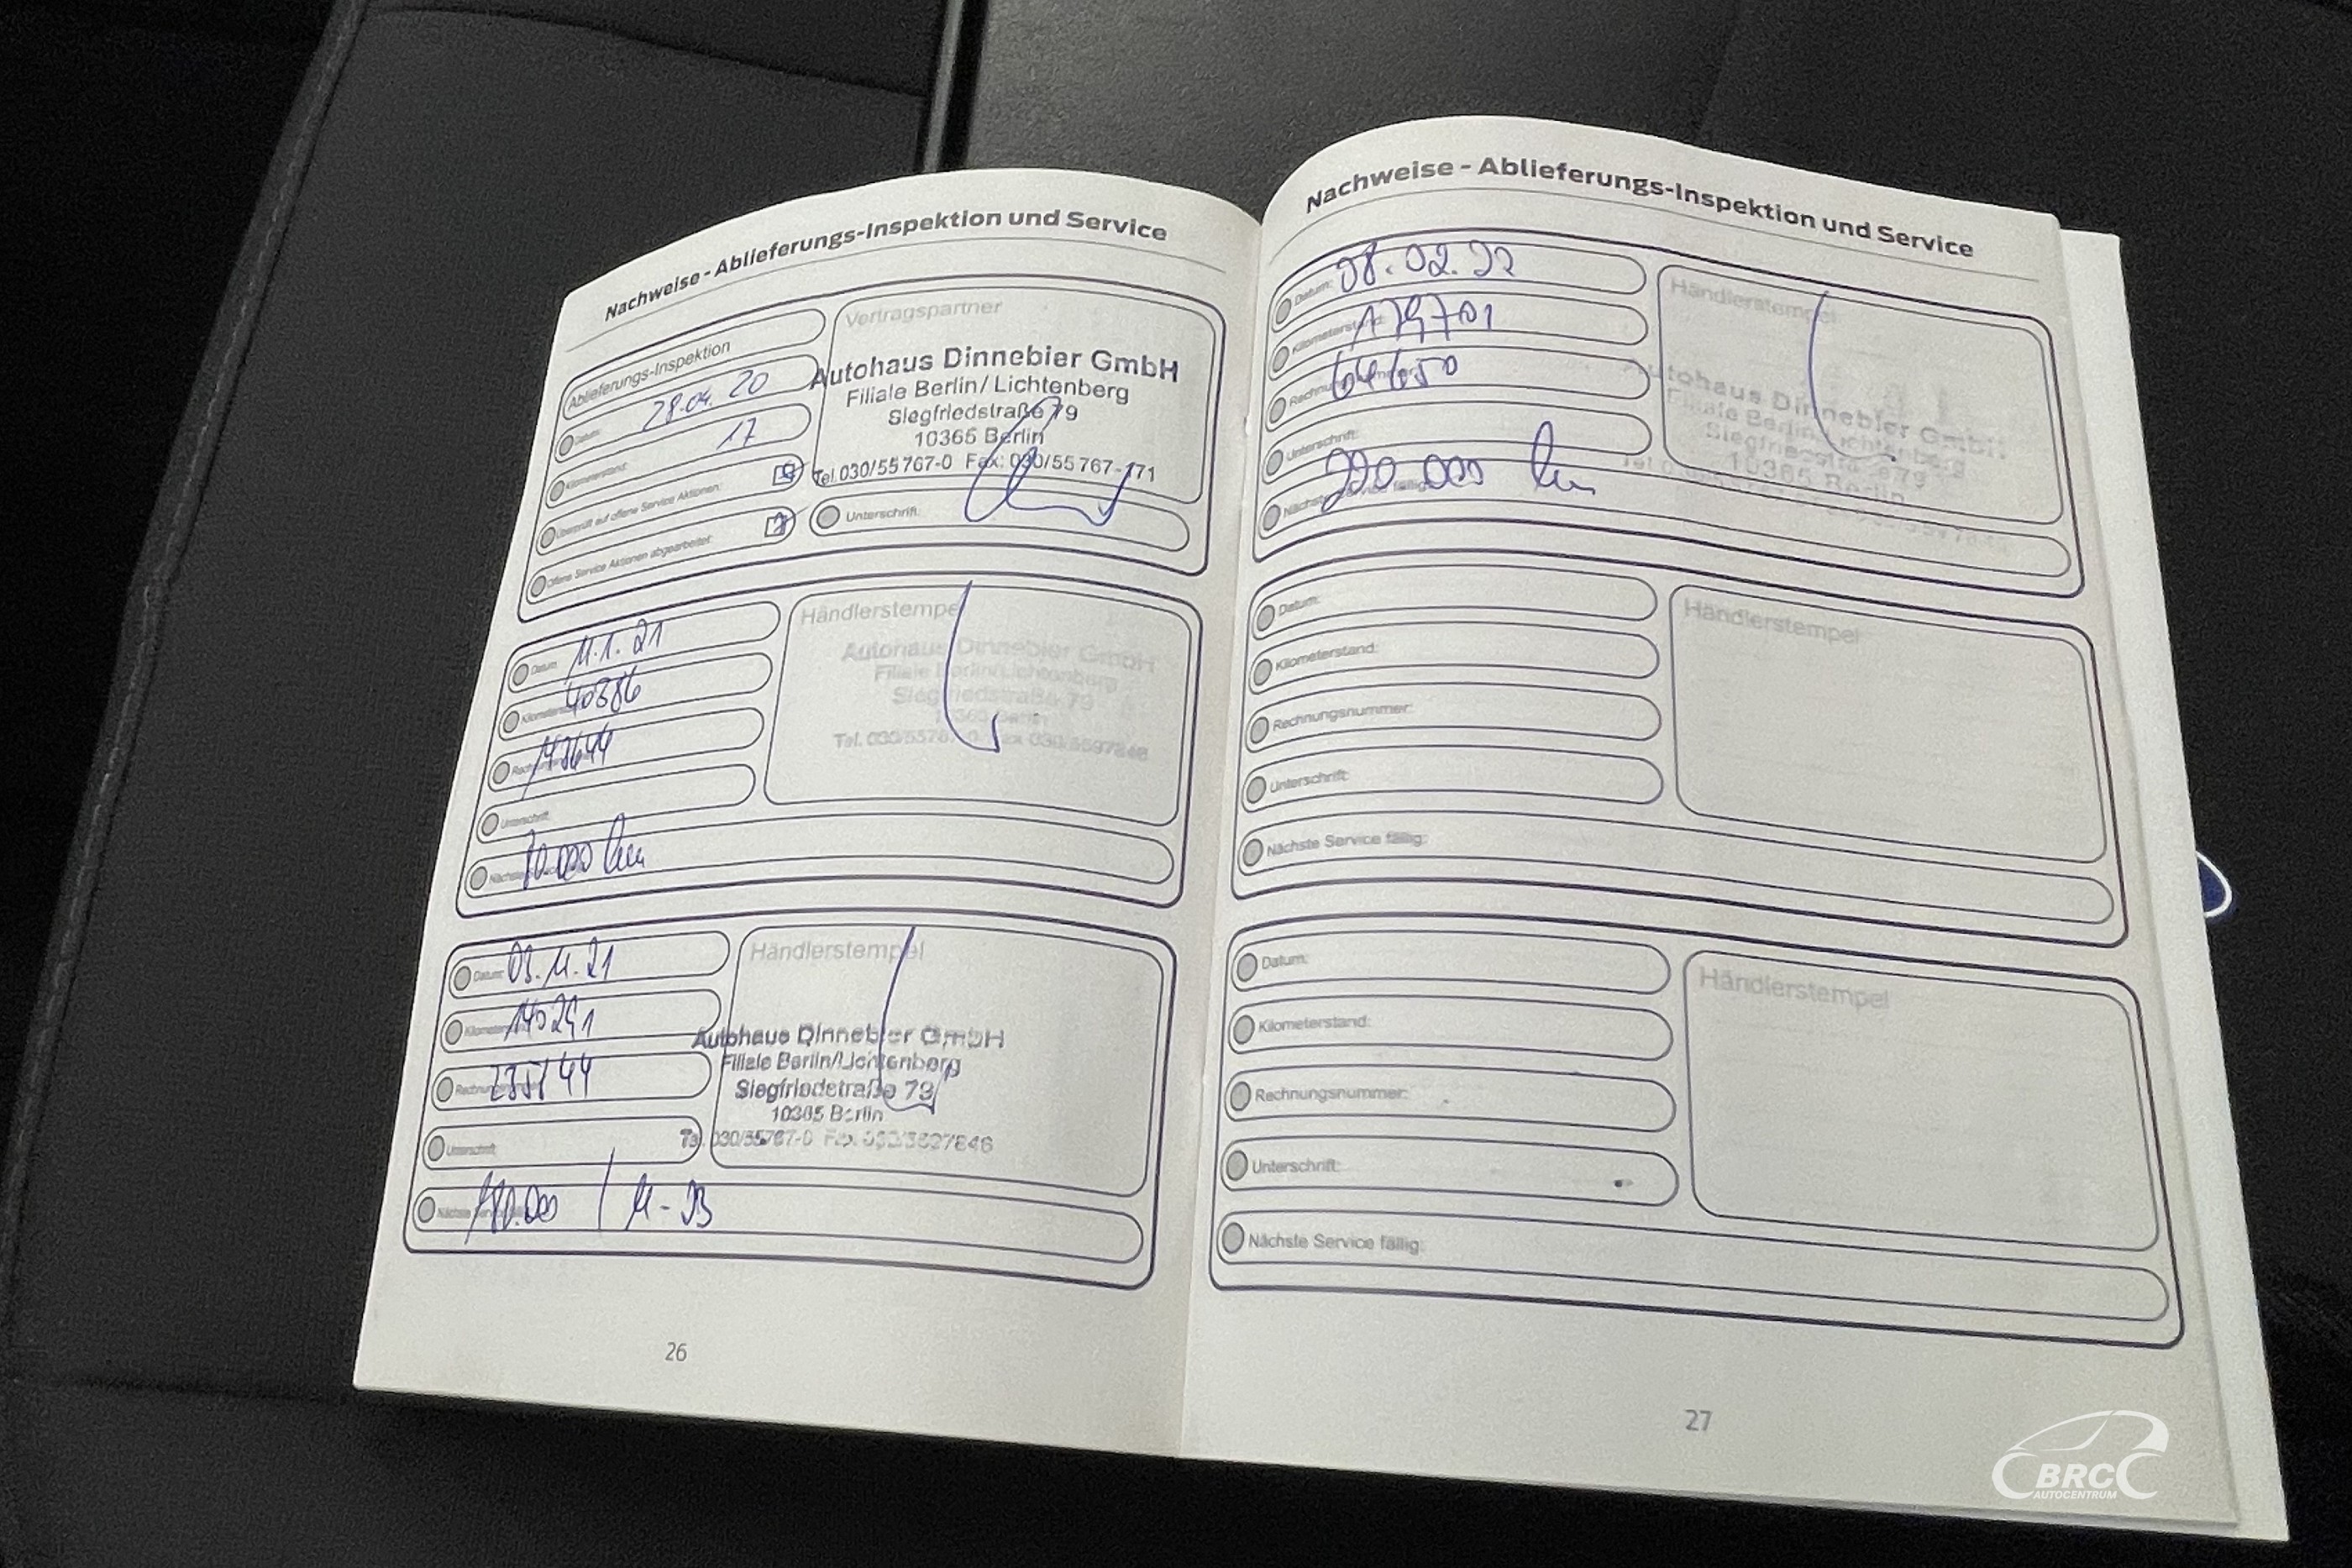 Nachweise - Ablieferungs-Inspektion und Service
Ablieferungs-Inspektion
Datum: 28.04.20
Kilometerstand: 17
Überprüft auf offene Service Aktionen:
Offene Service Aktionen abgearbeitet:
Vertragspartner
Autohaus Dinnebier GmbH
Filiale Berlin/Lichtenberg
Siegfriedstraße 79
10365 Berlin
Tel. 030/55 767-0 Fax: 030/55 767-171
Unterschrift:
Datum: 11.1.21
40386
Unterschrift:
80.000 km
Händlerstempel
Autohaus Dinnebier GmbH
Filiale Berlin/Lichtenberg
Siegfriedstraße 79
10365 Berlin
Tel. 030/55767-0 Fax 030/5597846
Datum: 03.11.21
Unterschrift:
180.000 / 11-23
Händlerstempel
Autohaus Dinnebier GmbH
Filiale Berlin/Lichtenberg
Siegfriedstraße 79
10365 Berlin
Tel. 030/55767-0
26
Nachweise - Ablieferungs-Inspektion und Service
Datum: 08.02.22
Kilometerstand: 179701
64650
Unterschrift:
Nächste Service fällig: 220.000 km
Händlerstempel
Autohaus Dinnebier GmbH
Filiale Berlin/Lichtenberg
Siegfriedstraße 79
10365 Berlin
Datum:
Kilometerstand:
Rechnungsnummer:
Unterschrift:
Nächste Service fällig:
Händlerstempel
Datum:
Kilometerstand:
Rechnungsnummer:
Unterschrift:
Nächste Service fällig:
Händlerstempel
27
BRC
AUTOCENTRUM